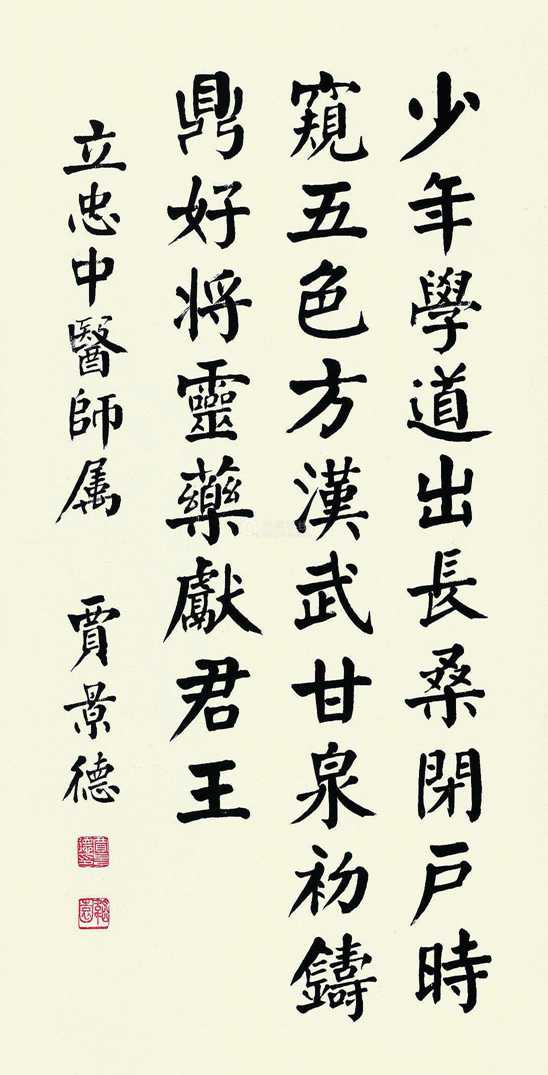 少年學道出長桑閉戶時
窺五色方漢武甘泉初鑄
鼎好將靈藥獻君王
立忠中醫師属 賈景德